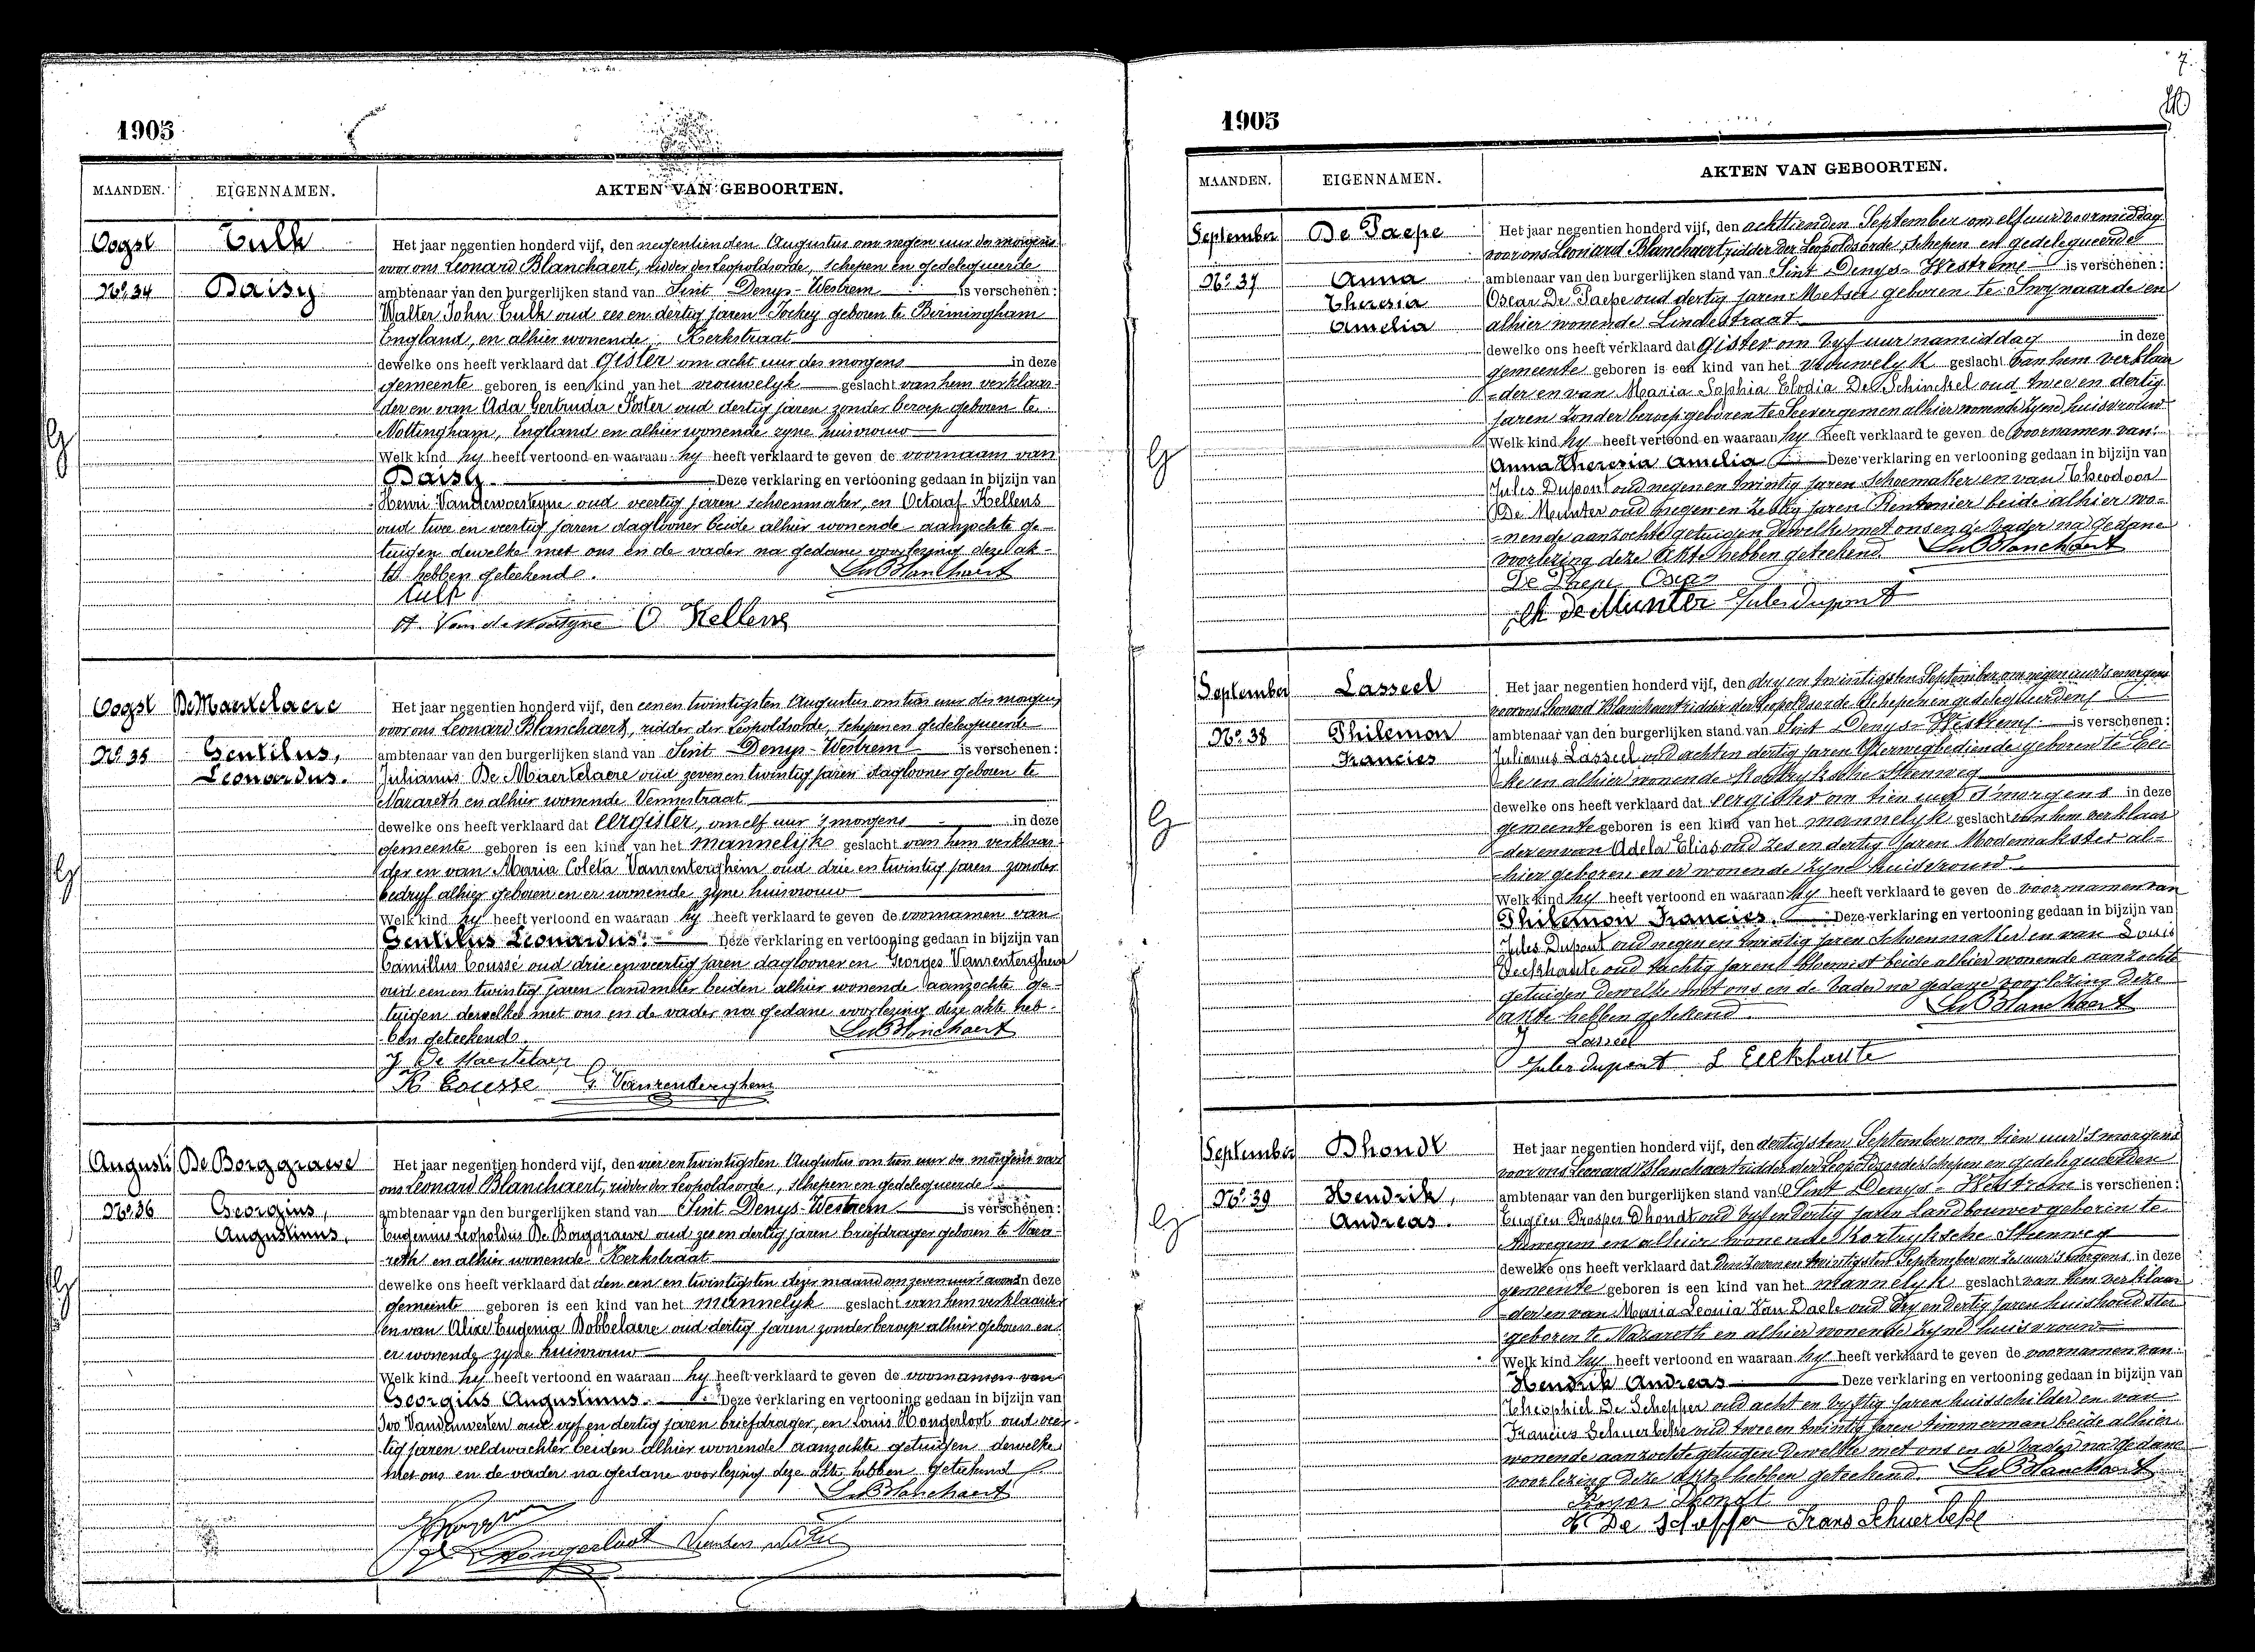 1905
MAANDEN. EIGENNAMEN. AKTEN VAN GEBOORTEN.
Oogst Culk
Nº 34 Daisy
Het jaar negentien honderd vijf, den negentienden Augustus om negen uur des morgens
voor ons Leonard Blanchaert, ridder der Leopoldsorde, schepen en gedelegueerde
ambtenaar van den burgerlijken stand van Sint Denys-Westrem is verschenen:
Walter John Culk oud zes en dertig jaren Jockey geboren te Birmingham
England, en alhier wonende, Kerkstraat
dewelke ons heeft verklaard dat gister om acht uur des morgens in deze
gemeente geboren is een kind van het vrouwelyk geslacht van hem verklaar-
der en van Ada Gertruda Foster oud dertig jaren zonder beroep geboren te
Nottingham, England en alhier wonende zyne huisvrouw
Welk kind hy heeft vertoond en waaraan hy heeft verklaard te geven de voornaam van
Daisy Deze verklaring en vertooning gedaan in bijzijn van
Henri Vandewoestyne oud veertig jaren schoenmaker, en Octaaf Kellens
oud twee en veertig jaren daglooner beide alhier wonende aanzochte ge-
tuigen dewelke met ons en de vader na gedane voorlezing deze ak-
te hebben geteekend. Ln Blanchaert
Culk
H. Vandewoestyne O Kellens
Oogst De Maertelaere
Nº 35 Gentilus,
Leonardus.
Het jaar negentien honderd vijf, den een en twintigsten Augustus om tien uur des morgens
voor ons Leonard Blanchaert, ridder der Leopoldsorde, schepen en gedelegueerde
ambtenaar van den burgerlijken stand van Sint Denys-Westrem is verschenen:
Julianus De Maertelaere oud zeven en twintig jaren daglooner geboren te
Nazareth en alhier wonende Vennestraat
dewelke ons heeft verklaard dat eergister, om elf uur 's morgens in deze
gemeente geboren is een kind van het mannelijk geslacht van hem verklaar-
der en van Maria Coleta Vanrenterghem oud drie en twintig jaren zonder
bedryf alhier geboren en er wonende zyne huisvrouw
Welk kind hy heeft vertoond en waaraan hy heeft verklaard te geven de voornamen van
Gentilus Leonardus. Deze verklaring en vertooning gedaan in bijzijn van
Camillus Cousse oud drie en veertig jaren daglooner en Georges Vanrenterghem
oud een en twintig jaren landmeter beiden alhier wonende aanzochte ge-
tuigen dewelke met ons en de vader na gedane voorlezing deze akte heb-
ben geteekend. Ln Blanchaert
J De Maertelaer
K Cousse G. Vanrenterghem
Augusti De Borggraeve
Nº 36 Georgius,
Augustinus.
Het jaar negentien honderd vijf, den vier en twintigsten Augustus om tien uur des morgens voor
ons Leonard Blanchaert, ridder der Leopoldsorde, schepen en gedelegueerde
ambtenaar van den burgerlijken stand van Sint Denys-Westrem is verschenen:
Eugenius Leopoldus De Borggraeve oud zes en dertig jaren briefdrager geboren te Naza-
reth en alhier wonende Kerkstraat
dewelke ons heeft verklaard dat den een en twintigsten dezer maand om zeven uur 's avonds in deze
gemeente geboren is een kind van het mannelyk geslacht van hem verklaarder
en van Alixe Eugenia Bobbelaere oud dertig jaren zonder beroep alhier geboren en
er wonende zyne huisvrouw
Welk kind hy heeft vertoond en waaraan hy heeft verklaard te geven de voornamen van
Georgius Augustinus. Deze verklaring en vertooning gedaan in bijzijn van
Ivo Vanderweeen oud vyf en dertig jaren briefdrager, en Louis Hongerloot oud veer-
tig jaren veldwachter beiden alhier wonende aanzochte getuigen dewelke
met ons en de vader na gedane voorlezing deze akte hebben geteekend
Ln Blanchaert
Hongerloot
7
1905
MAANDEN. EIGENNAMEN. AKTEN VAN GEBOORTEN.
September De Paepe
Nº 37 Anna
Theresia
Amelia
Het jaar negentien honderd vijf, den achttienden September om elf uur voormiddag
voor ons Leonard Blanchaert, ridder der Leopoldsorde, schepen en gedelegueerde
ambtenaar van den burgerlijken stand van Sint Denys-Westrem is verschenen:
Oscar De Paepe oud dertig jaren Metser geboren te Swynaarde en
alhier wonende Lindestraat
dewelke ons heeft verklaard dat gister om vyf uur namiddag in deze
gemeente geboren is een kind van het vrouwelyk geslacht van hem verklaar
der en van Maria Sophia Elodia De Schinckel oud twee en dertig
jaren zonder beroep geboren te Seevergem en alhier wonende zyne huisvrouw
Welk kind hy heeft vertoond en waaraan hy heeft verklaard te geven de voornamen van
Anna Theresia Amelia Deze verklaring en vertooning gedaan in bijzijn van
Jules Dupont oud negen en twintig jaren Schoemaker en van Theodoor
De Munter oud negen en zestig jaren Rentenier beide alhier wo-
nende aanzochte getuigen dewelke met ons en de vader na gedane
voorlezing deze akte hebben geteekend. Ln Blanchaert
De Paepe Oscar
Th De Munter Jules Dupont
September Lasseel
Nº 38 Philemon
Francies
Het jaar negentien honderd vijf, den dry en twintigsten September om negen uur 's morgens
voor ons Leonard Blanchaert ridder der Leopoldsorde Schepen en gedelegueerden
ambtenaar van den burgerlijken stand van Sint Denys-Westrem is verschenen:
Julianus Lasseel oud acht en dertig jaren Yzerwegbediende geboren te Eec-
ke en alhier wonende Kortryksche Steenweg
dewelke ons heeft verklaard dat eergister om tien uur 's morgens in deze
gemeente geboren is een kind van het mannelyk geslacht van hem verklaar
der en van Adela Elias oud zes en dertig jaren Modemakster al-
hier geboren en er wonende zyne huisvrouw
Welk kind hy heeft vertoond en waaraan hy heeft verklaard te geven de voornamen van
Philemon Francies. Deze verklaring en vertooning gedaan in bijzijn van
Jules Dupont oud negen en twintig jaren Schoenmaker en van Louis
Eeckhaute oud tachtig jaren bloemist beide alhier wonende aanzochte
getuigen dewelke met ons en de vader na gedane voorlezing deze
akte hebben geteekend. Ln Blanchaert
J Lasseel
Jules Dupont L Eeckhaute
September Dhondt
Nº 39 Hendrik,
Andreas.
Het jaar negentien honderd vijf, den dertigsten September om tien uur 's morgens
voor ons Leonard Blanchaert ridder der Leopoldsorde schepen en gedelegueerden
ambtenaar van den burgerlijken stand van Sint Denys-Westrem is verschenen:
Eugeen Prosper Dhondt oud vyf en dertig jaren Landbouwer geboren te
en alhier wonende Kortryksche Steenweg
dewelke ons heeft verklaard dat den zeven en twintigsten September om zes uur 's morgens in deze
gemeente geboren is een kind van het mannelyk geslacht van hem verklaar
der en van Maria Leonia Van Daele oud dry en dertig jaren huishoudster
geboren te Nazareth en alhier wonende zyne huisvrouw
Welk kind hy heeft vertoond en waaraan hy heeft verklaard te geven de voornamen van
Hendrik Andreas Deze verklaring en vertooning gedaan in bijzijn van
Theophiel De Schepper oud acht en vyftig jaren huisschilder en van
Francies Schuerbeke oud twee en twintig jaren timmerman beide alhier
wonende aanzochte getuigen dewelke met ons en de vader na gedane
voorlezing deze akte hebben geteekend. Ln Blanchaert
Dhondt
T De Schepper Frans Schuerbeke